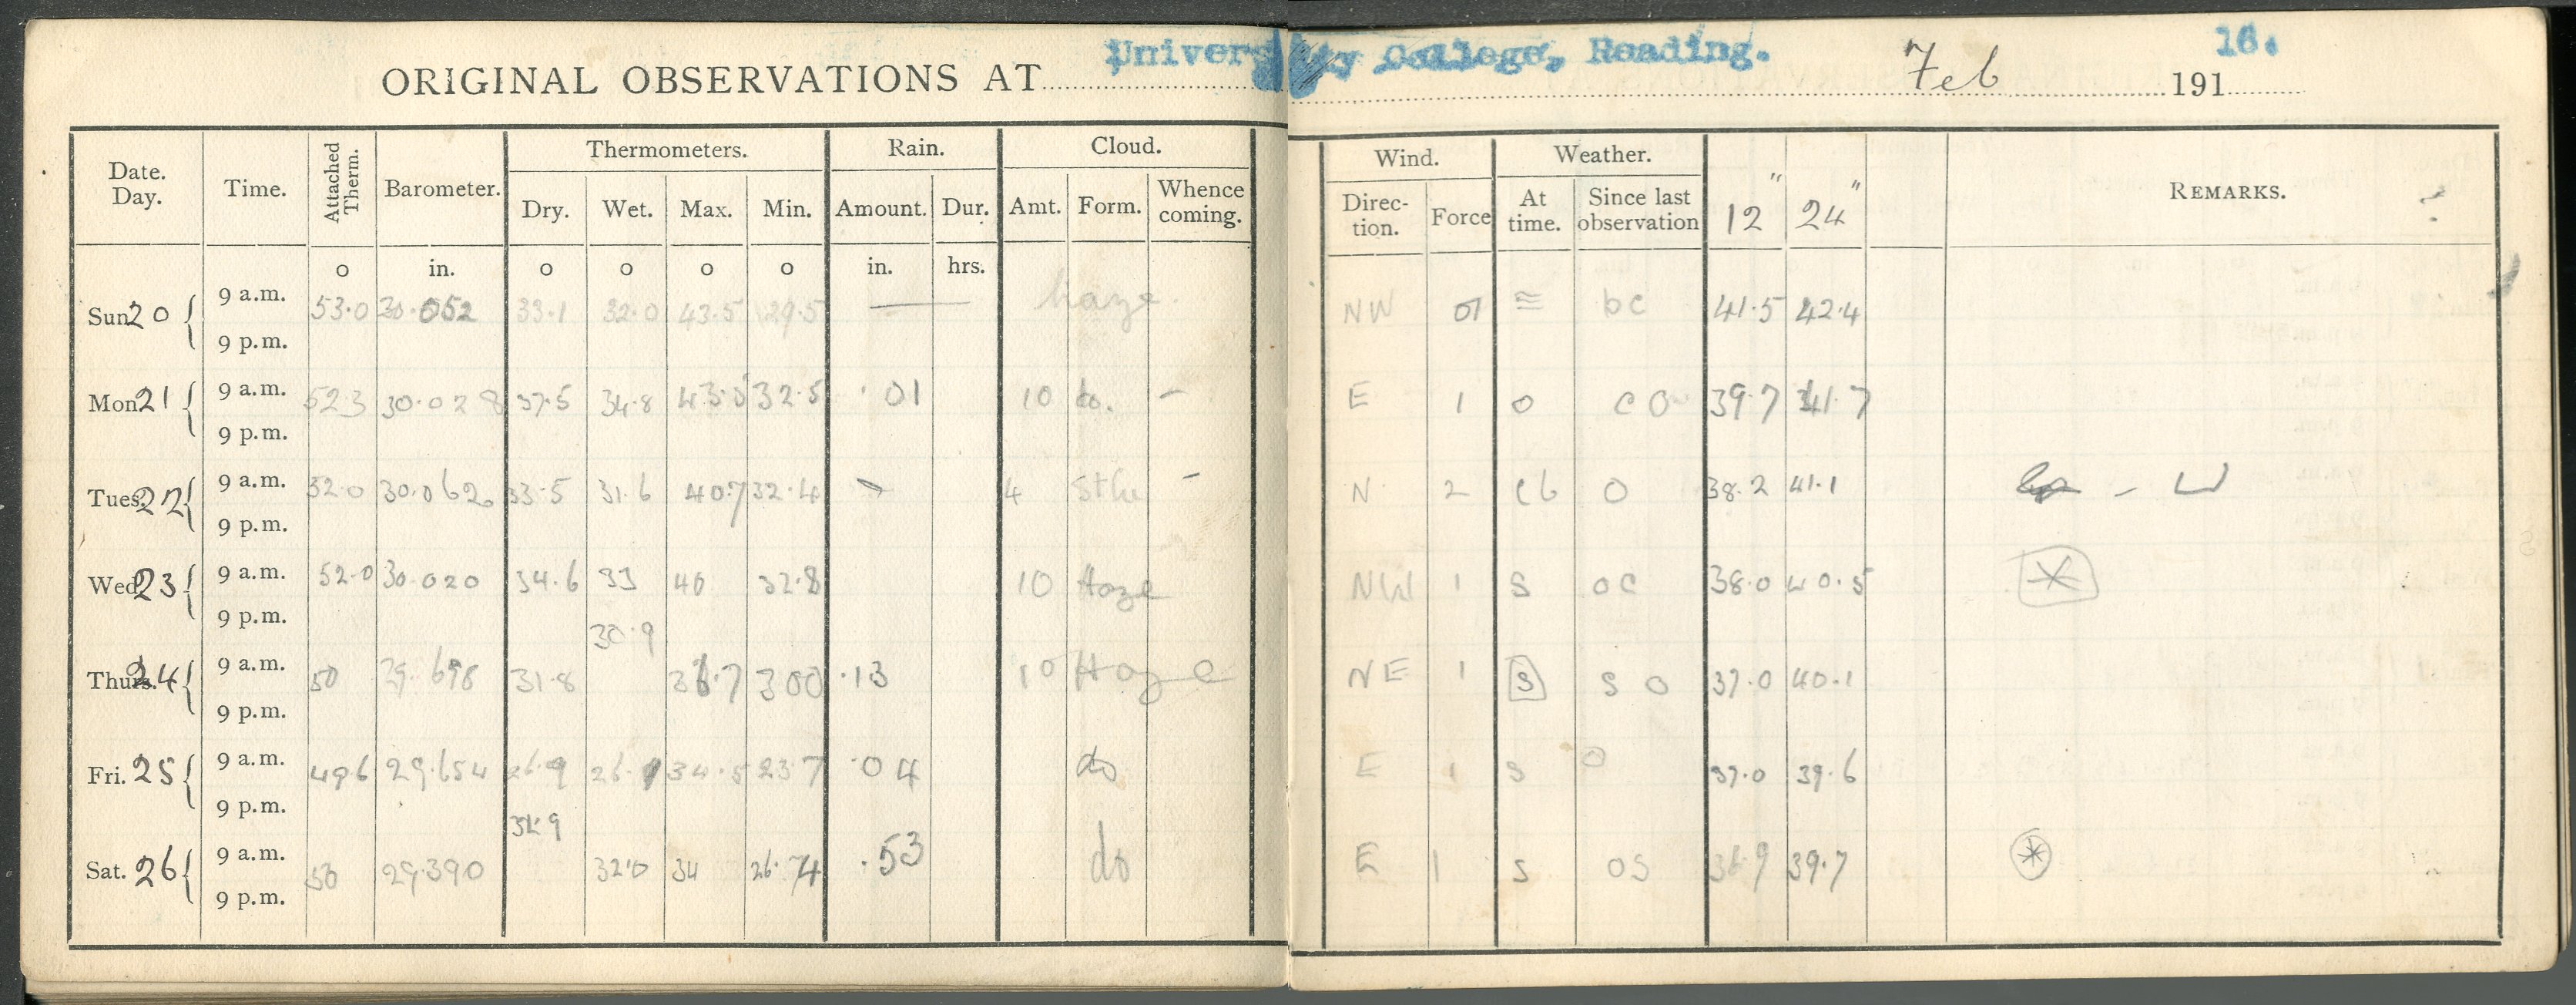 University College, Reading. 16.
ORIGINAL OBSERVATIONS AT Feb 191
Date. Day. Time. Attached Therm. Barometer. Thermometers. Rain. Cloud. Wind. Weather. 12" 24" REMARKS.
Dry. Wet. Max. Min. Amount. Dur. Amt. Form. Whence coming. Direc- tion. Force At time. Since last observation
o in. o o o o in. hrs.
Sun 20 9 a.m. 53.0 30.052 33.1 32.0 43.5 29.5 — haze NW 01 ≡ bc 41.5 42.4
9 p.m.
Mon 21 9 a.m. 52.3 30.028 37.5 34.8 43.5 32.5 .01 10 do. – E 1 o c o 39.7 41.7
9 p.m.
Tues 22 9 a.m. 52.0 30.062 33.5 31.6 40.7 32.4 – 4 – N 2 cb o 38.2 41.1 – ⊔
9 p.m.
Wed 23 9 a.m. 52.0 30.020 34.6 33 40 32.8 10 Haze NW 1 s oc 38.0 40.5 *
9 p.m.
30.9
Thurs. 24 9 a.m. 50 29.698 31.8 36.7 30.0 .13 10 Haze NE 1 s s o 37.0 40.1
9 p.m.
Fri. 25 9 a.m. 49.6 29.654 26.9 34.5 23.7 .04 do E 1 s o 37.0 39.6
9 p.m.
Sat. 26 9 a.m. 50 29.390 32.0 34 .53 do E 1 s os 36.9 39.7 *
9 p.m.